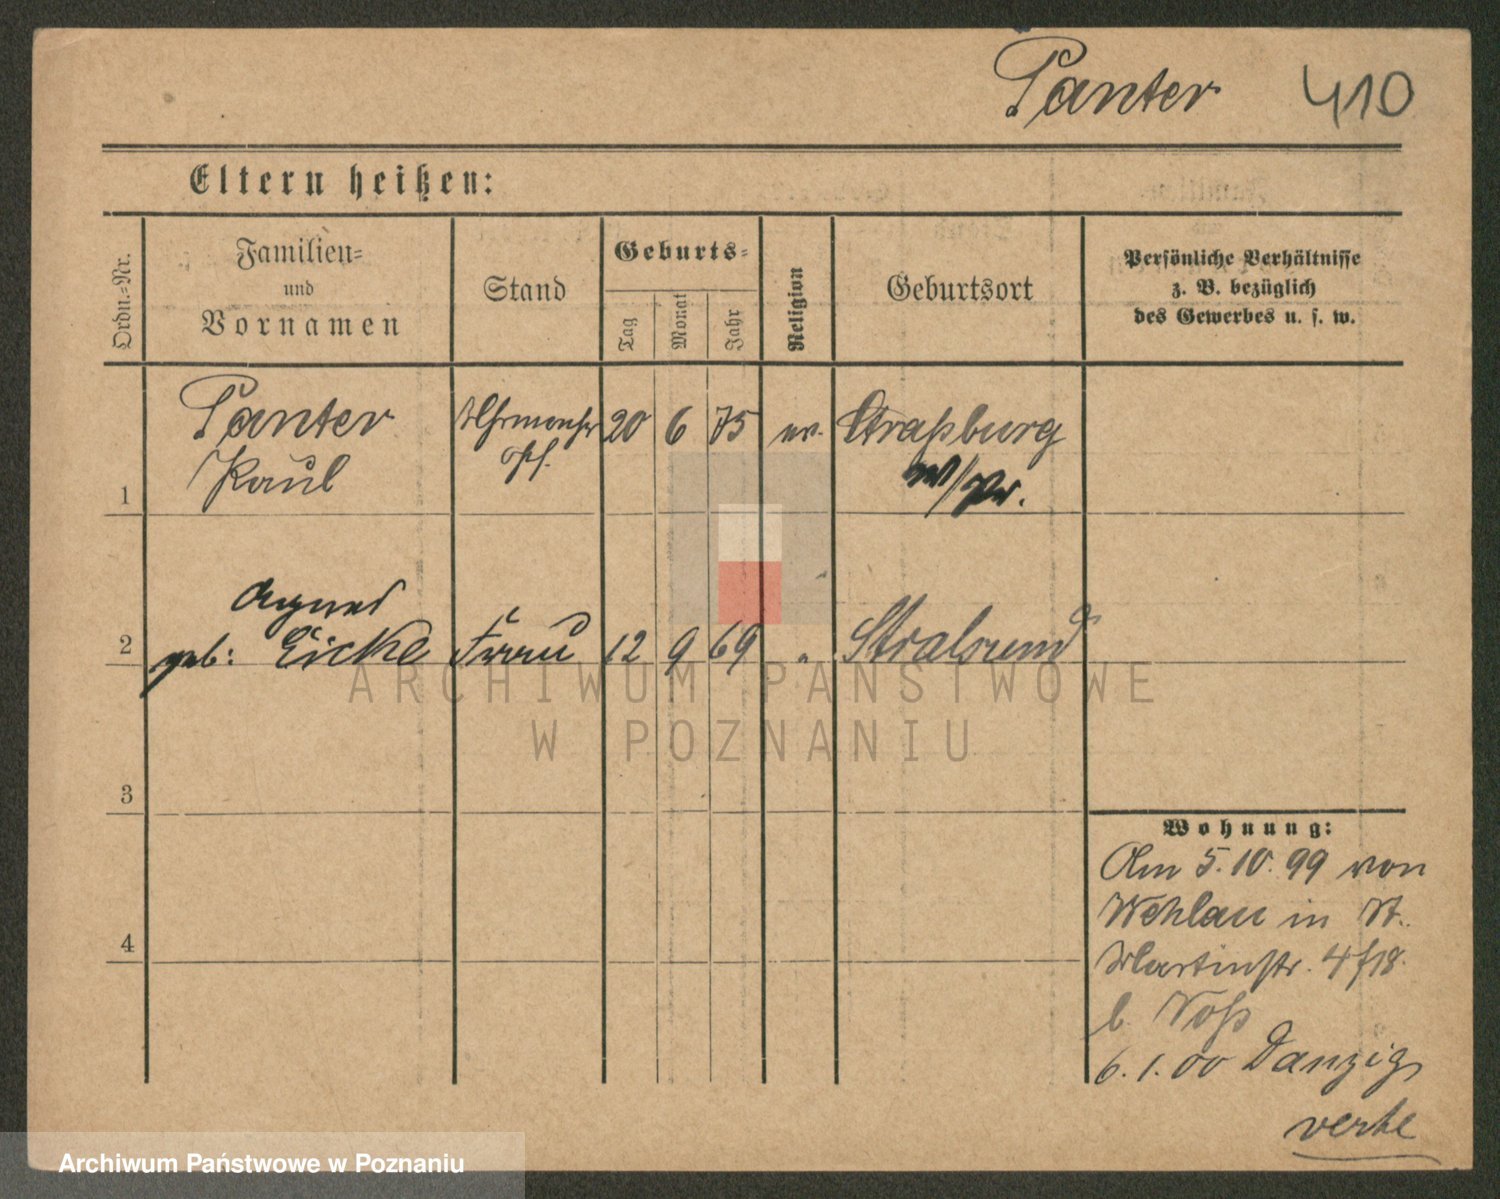 Panter 410
Eltern heißen:
Ordn.-Nr.
Familien-
und
Vornamen
Stand
Geburts-
Tag
Monat
Jahr
Religion
Geburtsort
Persönliche Verhältnisse
z. B. bezüglich
des Gewerbes u. s. w.
1
Panter
Paul
20 6 75 ev. Straßburg
w/Pr.
2
Agnes
geb: Eicke Frau 12 9 69 " Stralsund
3
4
Wohnung:
Am 5.10.99 von
Wehlau in St.
Martinstr. 4
b. Voß
6.1.00 Danzig
verte
ARCHIWUM PAŃSTWOWE
W POZNANIU
Archiwum Państwowe w Poznaniu